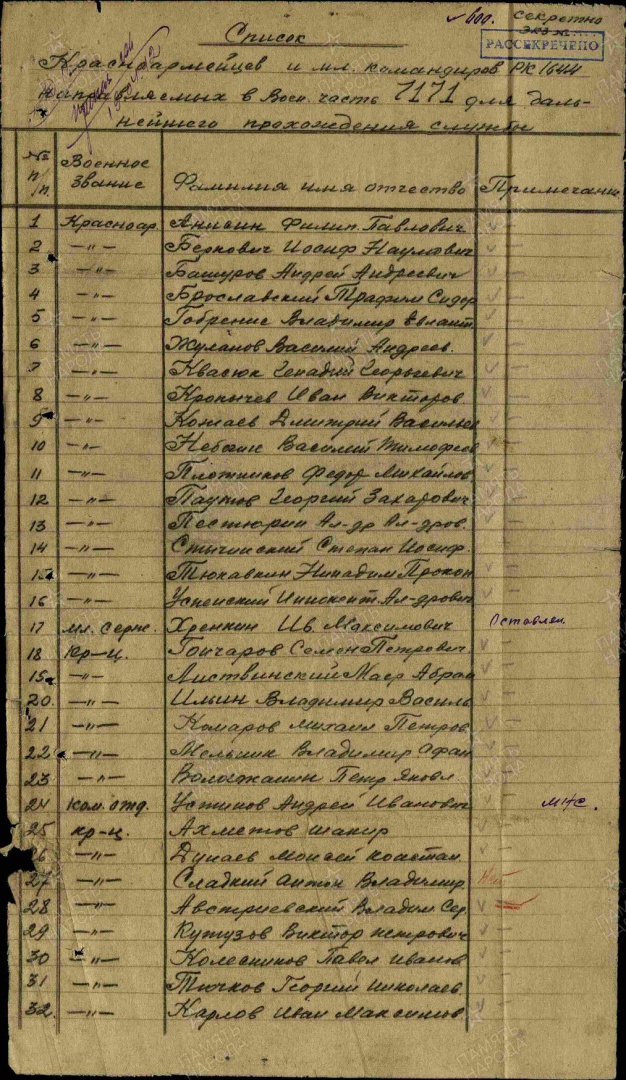 ✓ 600. Секретно
Экз №
РАССЕКРЕЧЕНО
Список
Красноармейцев и мл. командиров РК 1644
направляемых в Воен. часть 7171 для даль-
нейшего прохождения службы
№№ п/п. Военное звание Фамилия имя отчество Примечание
1 Красноар. Анисин Филип. Павлович ✓ —
2 —"— Беркович Иосиф Наумович ✓ —
3 —"— Башуров Андрей Андреевич ✓ —
4 —"— Брославский Трафим Сидор ✓ —
5 —"— Гобрение Владимир Евлант. ✓ —
6 —"— Жуланов Василий Андреев. ✓ —
7 —"— Квасюк Генадий Георгиевич ✓ —
8 —"— Кропычев Иван Викторов. ✓ —
9 —"— Кожаев Дмитрий Васильев ✓ —
10 —"— Небогин Василий Тимофеев ✓ —
11 —"— Плотников Федор Михайлов ✓ —
12 —"— Паутов Георгий Захарович ✓ —
13 —"— Пестюрин Ал-др Ал-дров. ✓ —
14 —"— Стычинский Степан Иосиф. ✓ —
15 —"— Тюкавкин Никадим Прокоп ✓ —
16 —"— Успенский Инокент. Ал-дрович ✓ —
17 мл. серж. Хренкин Ив. Максимович Оставлен
18 Кр-ц. Гончаров Семен Петрович. ✓ —
19 —"— Листвинский Маер Абрам ✓ —
20. —"— Ильин Владимир Василь ✓ —
21 —"— Комаров Михаил Петров ✓ —
22 —"— Мельник Владимир Афан ✓ —
23 —"— Вологжанин Петр Яковл ✓ —
24 ком. отд. Устинов Андрей Иванович МНС.
25 кр-ц. Ахметов Шакир ✓ —
26 —"— Дунаев Моисей Констан. ✓ —
27 —"— Сладкий Антон Владимир Нет
28 —"— Австриевский Владим Сер. ✓ —
29 —"— Кутузов Виктор Петрович ✓ —
30 —"— Колесников Павел Иванов ✓ —
31 —"— Тючков Георгий Николаев ✓ —
32. —"— Карлов Иван Максимов ✓ —